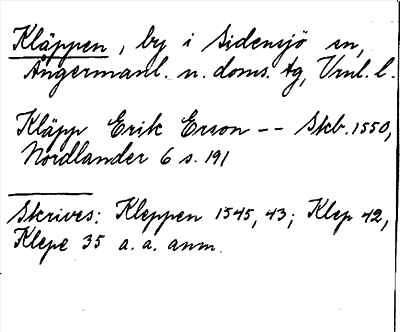 Kläppen, by i Sidensjö sn,
Ångermanl. n. doms. tg, Vrnl. l.
Kläpp Erik Erson -- Skb. 1550,
Nordlander 6 s. 191
Skrives: Kleppen 1545, 43; Klep 42,
Klepe 35 a. a. anm.